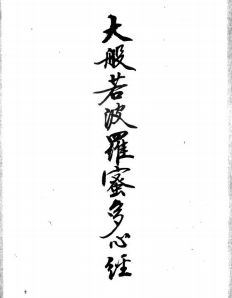 大般若波羅蜜多心経